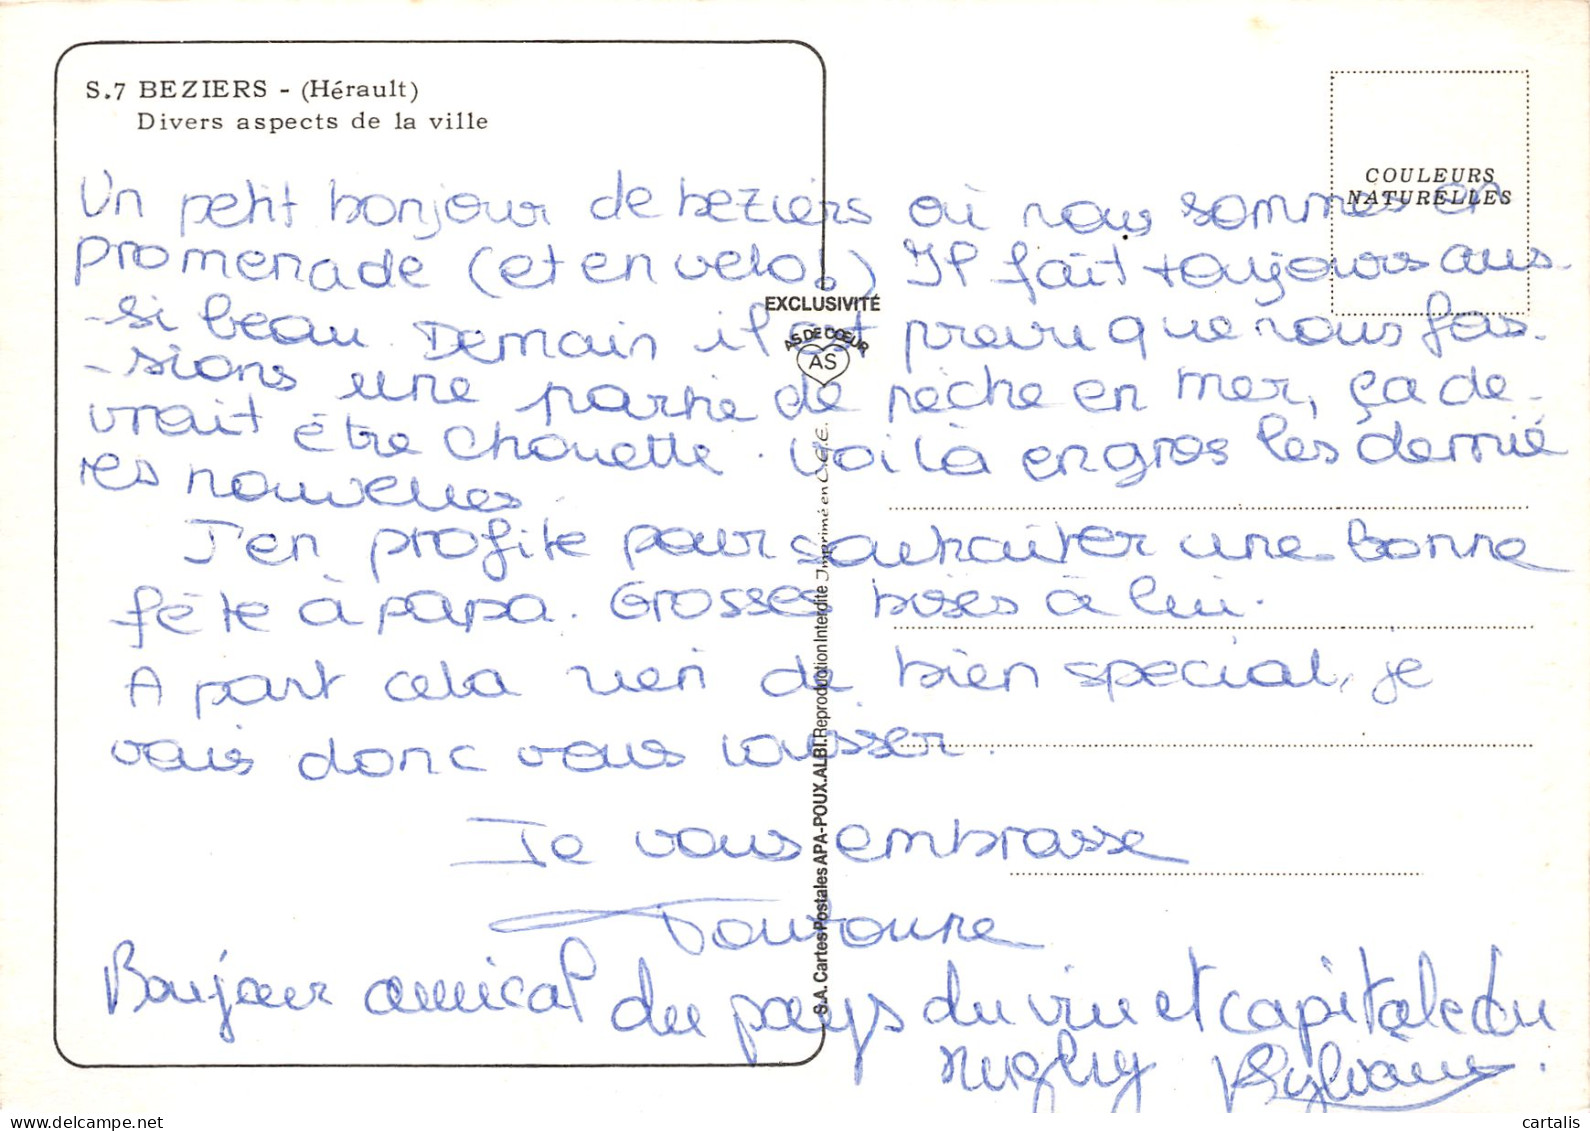 S.7 BEZIERS - (Hérault)
Divers aspects de la ville
COULEURS
NATURELLES
Un petit bonjour de beziers où nous sommes en
promenade (et en velo!) Il fait toujours aus-
-si beau. Demain il est prevu que nous fas-
-sions une partie de pêche en mer, ça de-
vrait être chouette. Voilà en gros les derniè
res nouvelles
J'en profite pour souhaiter une bonne
fête à papa. Grosses bises à lui.
A part cela rien de bien special, je
vais donc vous laisser.
Je vous embrasse
Bonjour amical du pays du vin et capitale du
rugby Sylviane.
EXCLUSIVITÉ
AS DE CŒUR
AS
S.A. Cartes Postales APA-POUX.ALBI.Reproduction Interdite Imprimé en C.E.E.
cartalis
delcampe.net